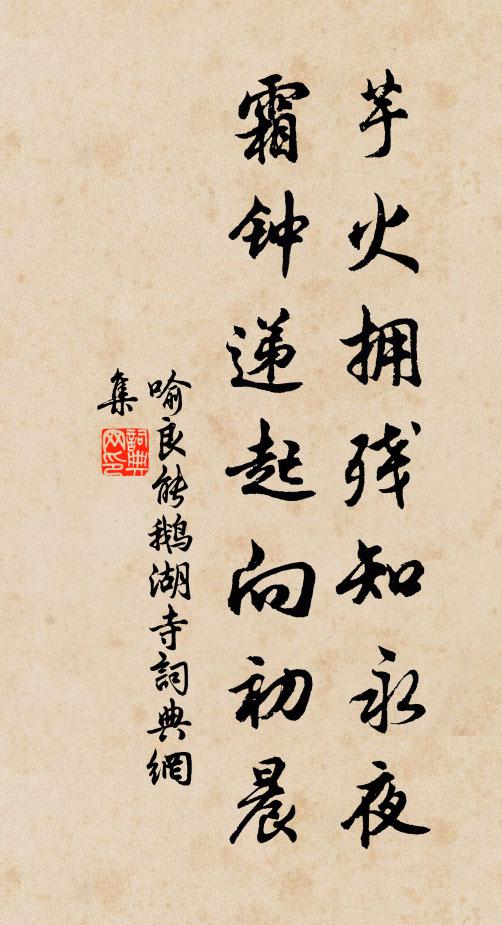 芋火拥残知永夜
霜钟递起向初晨
喻良能鹅湖寺詞典網
集
詞典网印